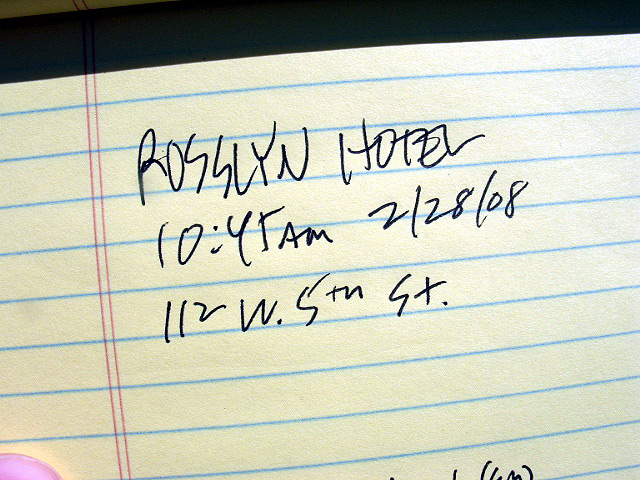 ROSSLYN HOTEL
10:45AM 2/28/08
112 W. 5th St.